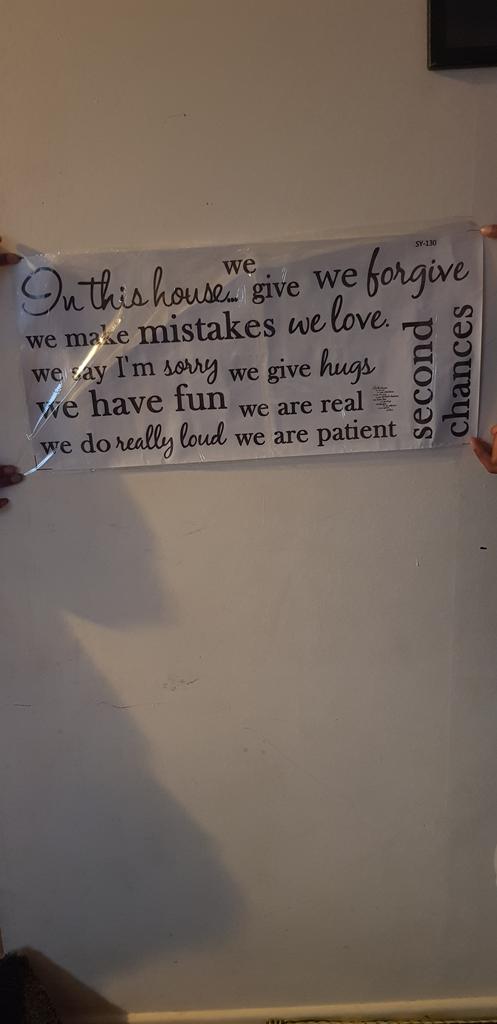 SY-130
we
In this house... give we forgive
we make mistakes we love.
we say I'm sorry we give hugs
we have fun we are real
we do really loud we are patient
second
chances